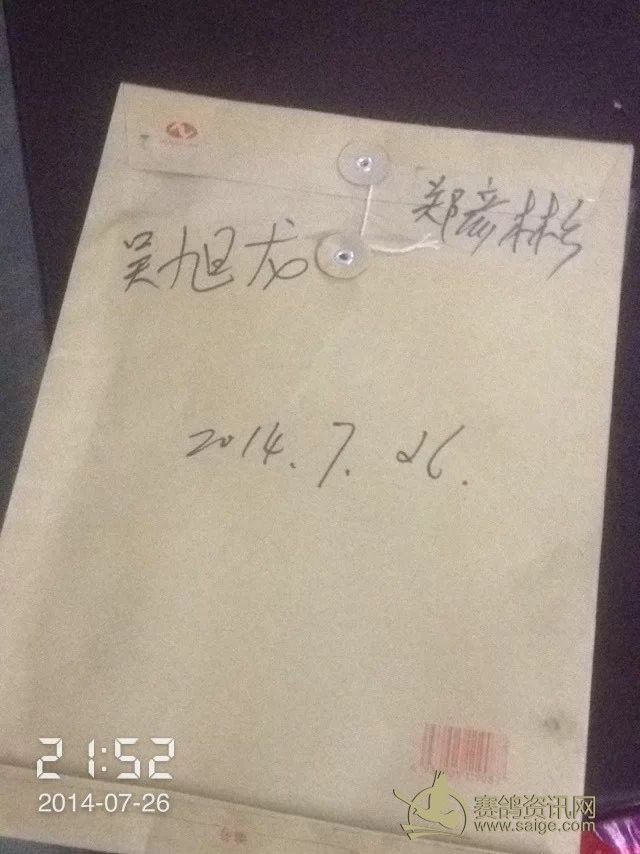 郑彦彬
吴旭龙
2014.7.26.
21:52
2014-07-26
赛鸽资讯网
www.saige.com